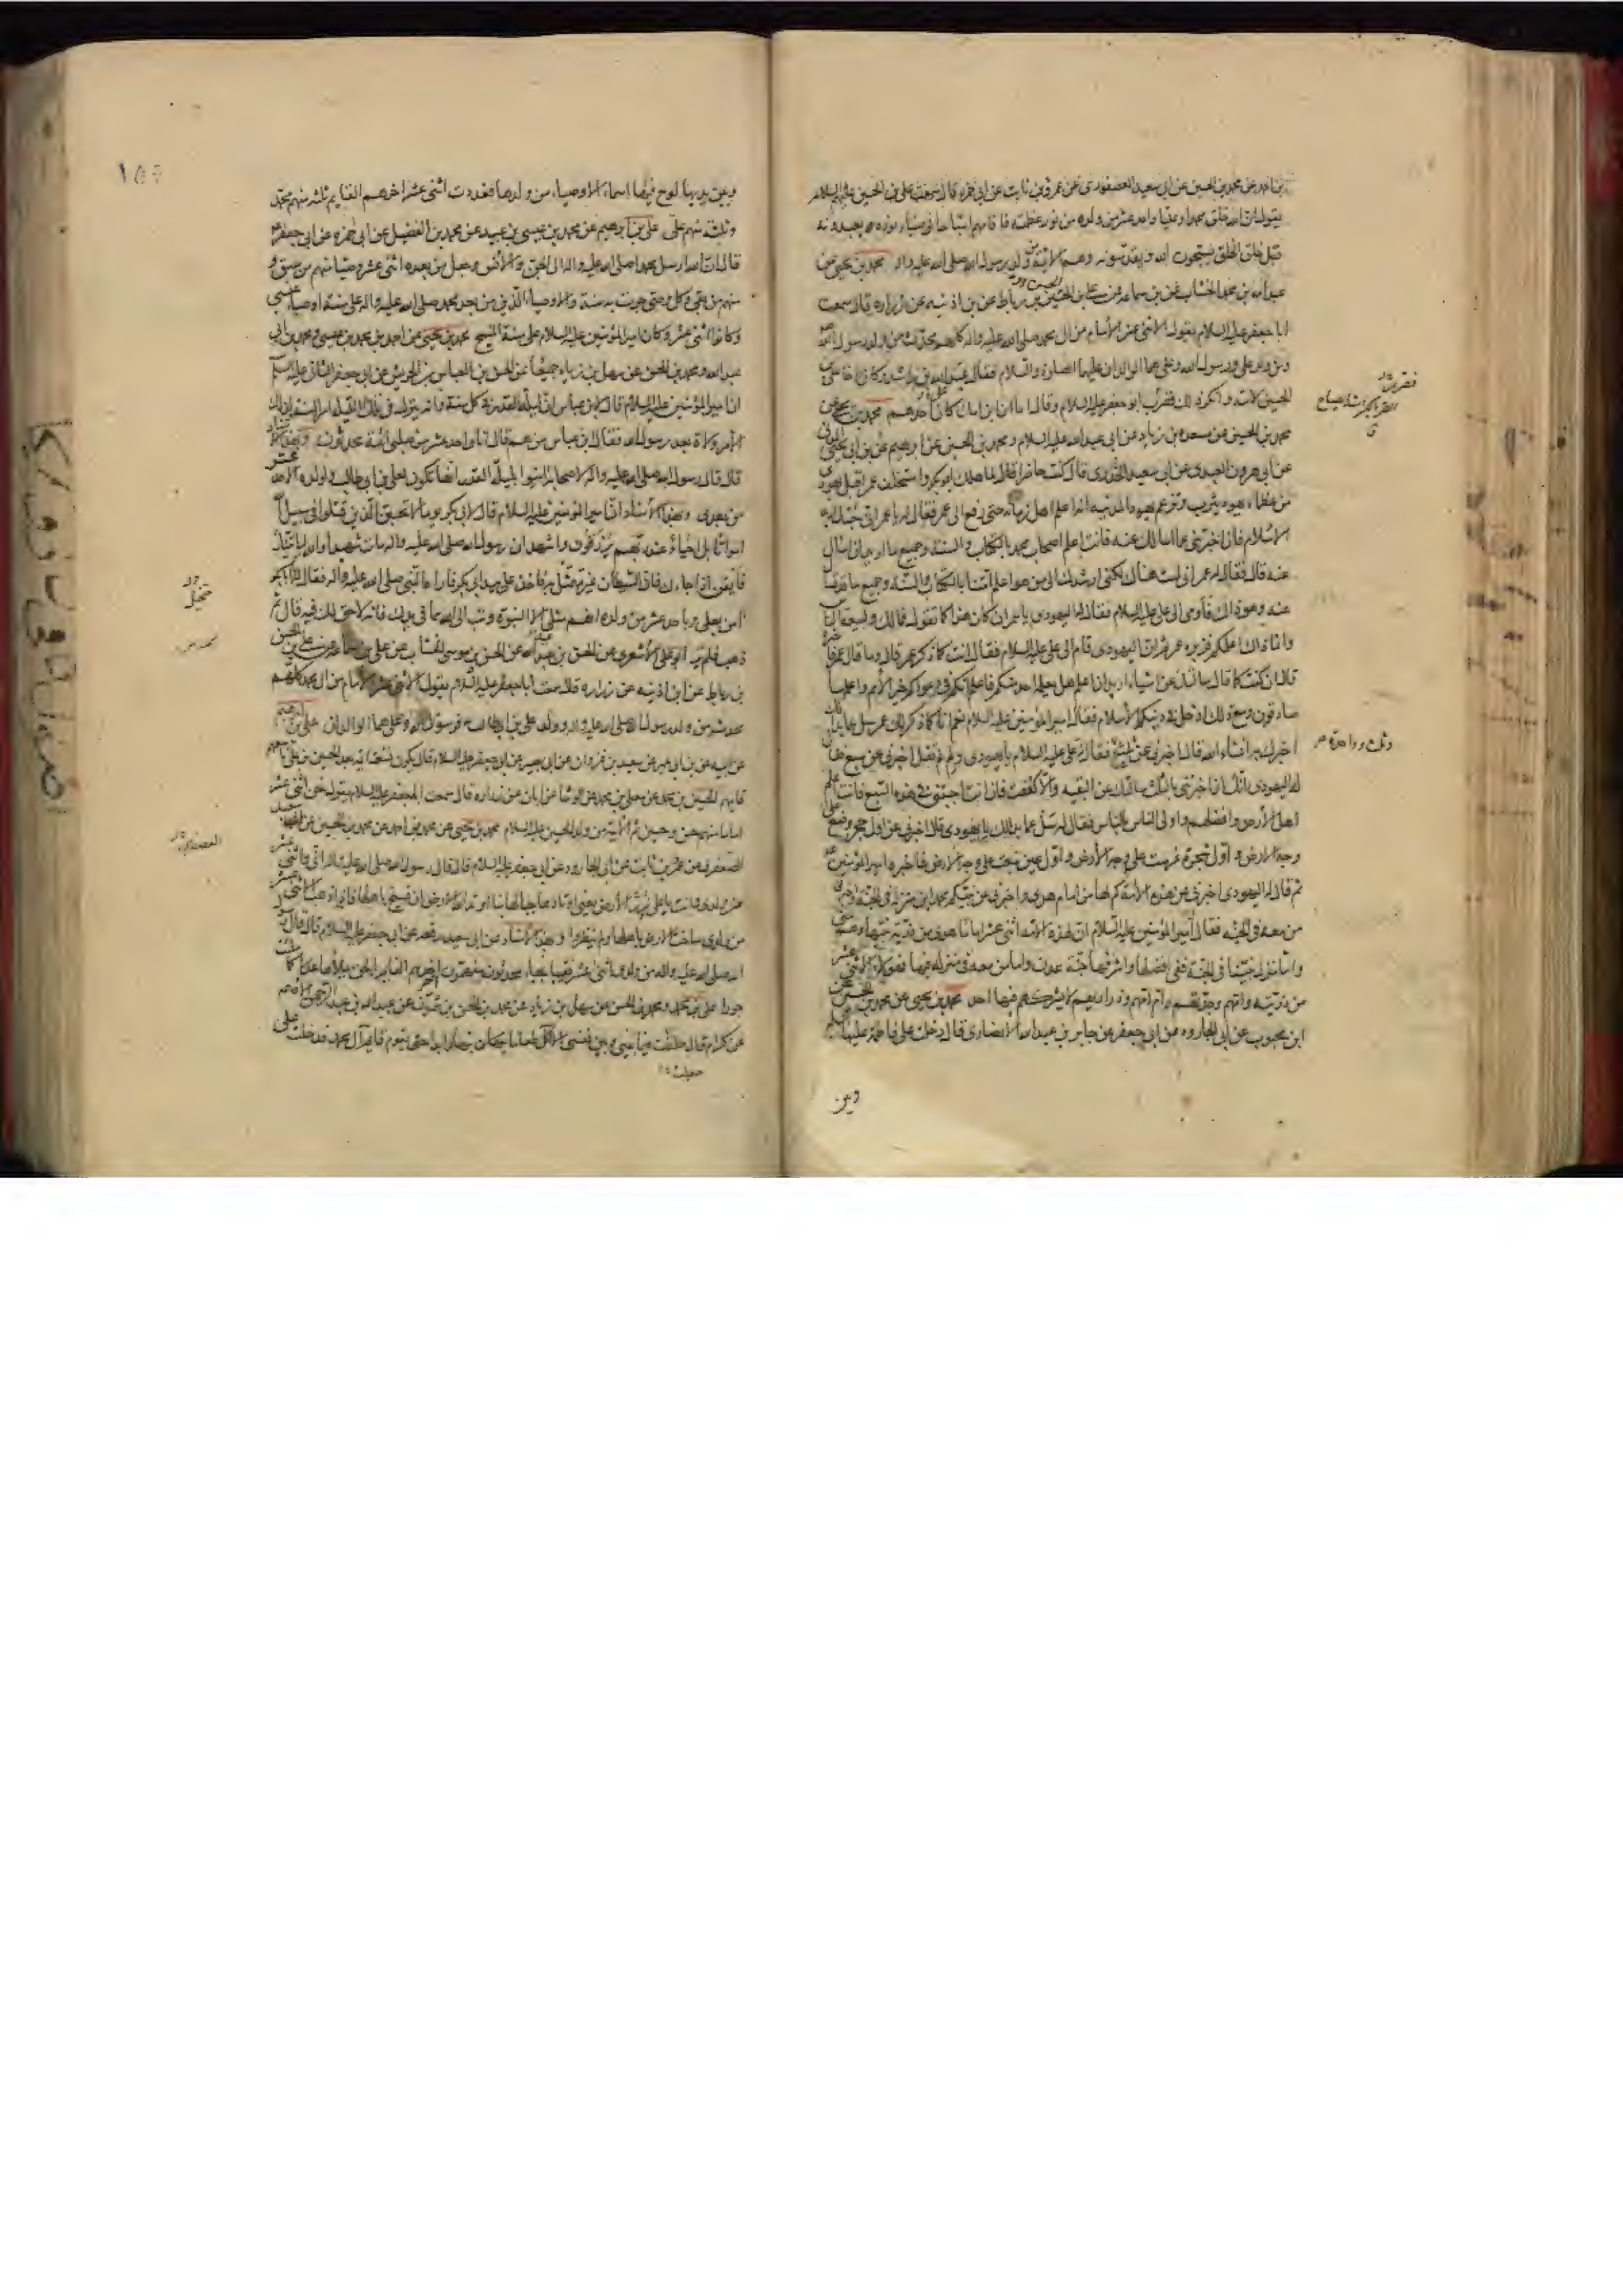 بن احمد عن محمد بن الحسين عن ابي سعيد العصفوري عن عمرو بن ثابت عن ابي حمزة قال سمعت علي بن الحسين عليهما السلام
يقول ان الله خلق محمدا وعليا واحد عشر من ولده من نور عظمته فاقامهم اشباحا في ضياء نوره يعبدونه
قبل خلق الخلق يسبحون الله ويقدسونه وهم الائمة من ولد رسول الله صلى الله عليه واله محمد بن يحيى عن
عبد الله بن محمد الخشاب عن بن سماعة عن علي بن الحسين بن رباط عن بن اذينه عن زراره قال سمعت
ابا جعفر عليه السلام يقول الاثنى عشر الامام من ال محمد صلى الله عليه واله كلهم محدث من ولد رسول الله
ومن ولد علي ورسول الله وعلي هما الوالدان عليهما الصلوة والسلام فقال عبد الله بن راشد وكان اخا علي بن
الحسين لامه وانكر ذلك فضرب ابو جعفر عليه السلام وقال اما ان ابن امك كان احدهم محمد بن يحيى عن
محمد بن الحسين عن مسعدة بن زياد عن ابي عبد الله عليه السلام ومحمد بن الحسين عن ابرهيم عن بن ابي يحيى المدني
عن ابي هرون العبدي عن ابي سعيد الخدري قال كنت حاضرا لما هلك ابو بكر واستخلف عمر اقبل يهودي
من عظماء يهود يثرب وتزعم يهود المدينه انه اعلم اهل زمانه حتى رفع الى عمر فقال له يا عمر اني جئتك اريد
الاسلام فان اخبرتني عما اسالك عنه فانت اعلم اصحاب محمد بالكتاب والسنة وجميع ما اريد ان اسال
عنه قال فقال له عمر اني لست هناك لكني ارشدك الى من هو اعلم امتنا بالكتاب والسنة وجميع ما قد تسال
عنه وهو ذاك فاومى الى علي عليه السلام فقال له اليهودي يا عمر ان كان هذا كما تقول فما لك ولبيعة الناس
وانما ذاك اعلمكم فزبره عمر ثم ان اليهودي قام الى علي عليه السلام فقال له انت كما ذكر عمر قال وما قال عمر فاخبره
قال ان كنت كما قال سالتك عن اشياء اريد ان اعلم هل يعلمه احد منكم فاعلم انكم في دعواكم خير الامم واعلمها
صادقون ومع ذلك ادخل في دينكم الاسلام فقال امير المؤمنين عليه السلام نعم انا كما ذكر لك عمر سل عما بدا لك
اخبرك به انشاء الله قال اخبرني عن ثلث فقال له علي عليه السلام يا يهودي ولم لم تقل اخبرني عن سبع فقال
له اليهودي انك ان اخبرتني بالثلث سالتك عن البقيه والا كففت فان انت اجبتني في هذه السبع فانت اعلم
اهل الارض وافضلهم واولى الناس بالناس فقال له سل عما بدا لك يا يهودي قال اخبرني عن اول حجر وضع على
وجه الارض واول شجرة غرست على وجه الارض واول عين نبعت على وجه الارض فاخبره امير المؤمنين
ثم قال له اليهودي اخبرني عن هذه الامة كم لها من امام هدى واخبرني عن نبيكم محمد اين منزله في الجنة واخبرني
من معه في الجنه فقال له امير المؤمنين عليه السلام ان لهذه الامه اثنى عشر اماما هدى من ذرية نبيها وهم مني
واما منزل نبينا في الجنة ففي افضلها واشرفها جنة عدن واما من معه في منزله فيها فهؤلاء الاثنى عشر
من ذريته وامهم وجدتهم وام امهم وذراريهم لا يشركهم فيها احد محمد بن يحيى عن محمد بن الحسين عن
ابن محبوب عن ابي الجارود عن ابي جعفر عن جابر بن عبد الله الانصاري قال دخلت على فاطمة عليها السلام
وبين
ثلث وواحدة
وبين يديها لوح فيها اسماء الاوصياء من ولدها فعددت اثنى عشر اخرهم القايم ثلثه منهم محمد
وثلثه منهم علي علي بن ابرهيم عن محمد بن عيسى بن عبيد عن محمد بن الفضيل عن ابي حمزه عن ابي جعفر
قال ان الله ارسل محمدا صلى الله عليه واله الى الجن والانس وجعل من بعده اثنى عشر وصيا منهم من سبق و
منهم من بقي وكل وصي جرت به سنة والاوصياء الذين من بعد محمد صلى الله عليه واله على سنة اوصياء عيسى
وكانوا اثنى عشر وكان امير المؤمنين عليه السلام على سنة المسيح محمد بن يحيى عن احمد بن محمد بن عيسى ومحمد بن ابي
عبد الله ومحمد بن الحسن عن سهل بن زياد جميعا عن الحسن بن العباس بن الحريش عن ابي جعفر الثاني عليه السلام
ان امير المؤمنين عليه السلام قال لابن عباس ان ليلة القدر في كل سنة وانه ينزل في تلك الليلة امر السنة ولذلك
الامر ولاة بعد رسول الله فقال ابن عباس من هم قال انا واحد عشر من صلبي ائمة محدثون وبهذا الاسناد
قال قال رسول الله صلى الله عليه واله لاصحابه امنوا بليلة القدر انها تكون لعلي بن ابي طالب ولولده الاحد عشر
من بعدي وبهذا الاسناد ان امير المؤمنين عليه السلام قال لابي بكر يوما لا تحسبن الذين قتلوا في سبيل الله
امواتا بل احياء عند ربهم يرزقون واشهد ان رسول الله صلى الله عليه واله مات شهيدا والله لياتينك
فايقن اذا جاءك فان الشيطان غير متمثل به فاخذ علي بيد ابي بكر فاراه النبي صلى الله عليه واله فقال له يا ابا بكر
امن بعلي وباحد عشر من ولده انهم مثلي الا النبوة وتب الى الله مما في يدك فانه لا حق لك فيه قال ثم
ذهب فلم ير ابو علي الاشعري عن الحسن بن عبيد الله عن الحسن بن موسى الخشاب عن علي بن سماعة عن علي بن الحسن
بن رباط عن ابن اذينه عن زراره قال سمعت ابا جعفر عليه السلام يقول الاثنى عشر الامام من ال محمد كلهم
محدث من ولد رسول الله صلى الله عليه واله وولد علي بن ابي طالب فرسول الله وعلي هما الوالدان علي بن ابرهيم
عن ابيه عن بن ابي عمير عن سعيد بن غزوان عن ابي بصير عن ابي جعفر عليه السلام قال يكون تسعة ائمة بعد الحسين بن علي تاسعهم
قايمهم الحسين بن محمد عن معلى بن محمد عن الوشا عن ابان عن زراره قال سمعت ابا جعفر عليه السلام يقول نحن اثنى عشر
اماما منهم حسن وحسين ثم الائمة من ولد الحسين عليه السلام محمد بن يحيى عن محمد بن احمد عن محمد بن الحسين عن ابي سعيد
العصفري عن عمرو بن ثابت عن ابي الجارود عن ابي جعفر عليه السلام قال قال رسول الله صلى الله عليه واله اني واثنى عشر
من ولدي وانت يا علي زر الارض يعني اوتادها جبالها بنا اوتد الله الارض ان تسيخ باهلها فاذا ذهب الاثنى عشر
من ولدي ساخت الارض باهلها ولم ينظروا وبهذا الاسناد عن ابي سعيد رفعه عن ابي جعفر عليه السلام قال قال رسول
الله صلى الله عليه واله من ولدي اثنى عشر نقيبا نجباء محدثون مفهمون اخرهم القايم بالحق يملاها عدلا كما ملئت
جورا علي بن محمد ومحمد بن الحسن عن سهل بن زياد عن محمد بن الحسن بن شمون عن عبد الله بن عبد الرحمن الاصم
عن كرام قال حلفت فيما بيني وبين نفسي الا اكل طعاما بنهار ابدا حتى يقوم قايم آل محمد فدخلت على
العصفوري